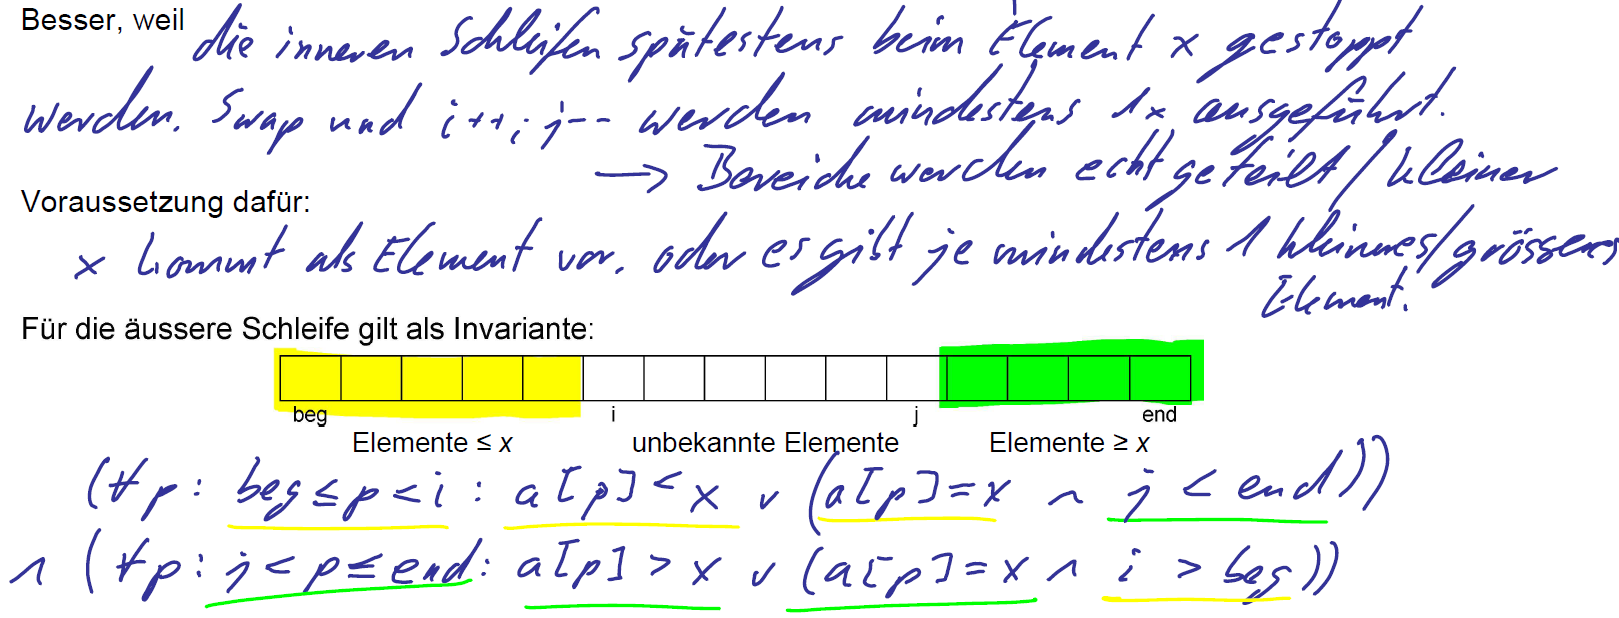 Besser, weil die inneren Schleifen spätestens beim Element x gestoppt
werden. Swap und i++; j-- werden mindestens 1x ausgeführt.
→ Bereiche werden echt geteilt/kleiner
Voraussetzung dafür:
x kommt als Element vor, oder es gibt je mindestens 1 kleineres/grösseres
Element.
Für die äussere Schleife gilt als Invariante:
beg i j end
Elemente ≤ x unbekannte Elemente Elemente ≥ x
(∀p: beg ≤ p < i : a[p] < x ∨ (a[p] = x ∧ j < end))
∧ (∀p: j < p ≤ end: a[p] > x ∨ (a[p] = x ∧ i > beg))